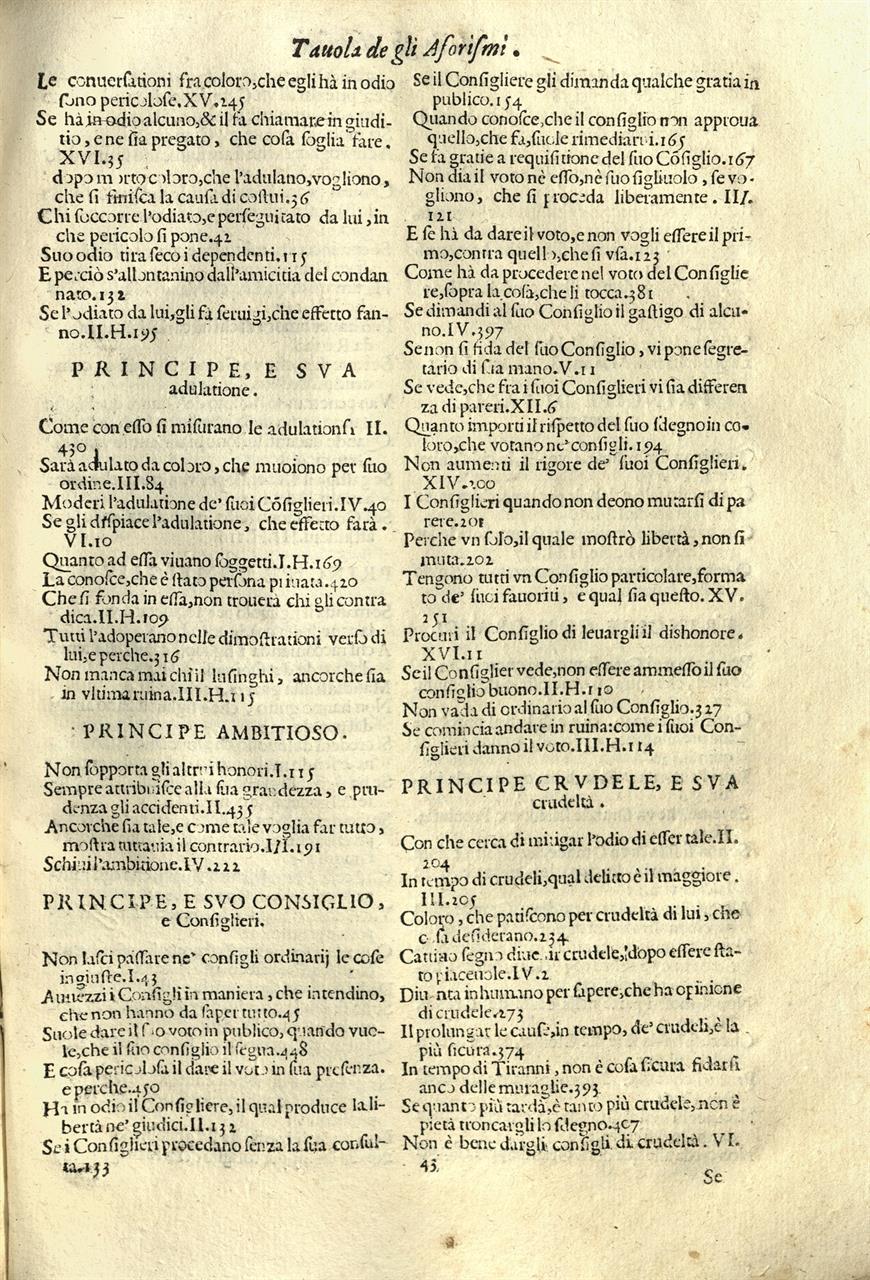 Tauola de gli Aforismi.
Le conuersationi fra coloro, che egli hà in odio
sono pericolose. XV. 245
Se hà in odio alcuno, & il fa chiamare in giudi-
tio, e ne sia pregato, che cosa soglia fare.
XVI. 35
dopo morto coloro, che l'adulano, vogliono,
che si finisca la causa di costui. 36
Chi soccorre l'odiato, e perseguitato da lui, in
che pericolo si pone. 42
Suo odio tira seco i dependenti. 115
E perciò s'allontanino dall'amicitia del condan
nato. 132
Se l'odiato da lui, gli fà seruigi, che effetto fan-
no. II. H. 195
PRINCIPE, E SVA
adulatione.
Come con esso si misurano le adulationsi II.
430
Sarà adulato da coloro, che muoiono per suo
ordine. III. 84
Moderi l'adulatione de' suoi Cõsiglieri. IV. 40
Se gli dispiace l'adulatione, che effetto farà.
VI. 10
Quanto ad essa viuano soggetti. I. H. 169
La conosce, che è stato persona priuata. 420
Che si fonda in essa, non trouerà chi gli contra
dica. II. H. 109
Tutti l'adoperano nelle dimostrationi verso di
lui, e perche. 316
Non manca mai chi il lusinghi, ancorche sia
in vltima ruina. III. H. 115
PRINCIPE AMBITIOSO.
Non sopporta gli altrui honori. I. 115
Sempre attribuisce alla sua grandezza, e pru-
denza gli accidenti. II. 435
Ancorche sia tale, e come tale voglia far tutto,
mostra tuttauia il contrario. III. 191
Schiui l'ambitione. IV. 222
PRINCIPE, E SVO CONSIGLIO,
e Consiglieri.
Non lasci passare ne' consigli ordinarij le cose
ingiuste. I. 43
Auuezzi i Consigli in maniera, che intendino,
che non hanno da saper tutto. 45
Suole dare il suo voto in publico, quando vuo-
le, che il suo consiglio il segua. 448
E cosa pericolosa il dare il voto in sua presenza.
e perche. 450
Ha in odio il Consigliere, il qual produce la li-
bertà ne' giudici. II. 132
Se i Consiglieri procedano senza la sua consul-
ta. 133
Se il Consigliere gli dimanda qualche gratia in
publico. 154
Quando conosce, che il consiglio non approua
quello, che fa, suole rimediarui. 165
Se fa gratie a requisitione del suo Cõsiglio. 167
Non dia il voto nè esso, nè suo figliuolo, se vo-
gliono, che si proceda liberamente. III.
121
E se hà da dare il voto, e non vogli essere il pri-
mo, contra quello, che si vsa. 123
Come hà da procedere nel voto del Consiglie
re, sopra la cosa, che li tocca. 381
Se dimandi al suo Consiglio il gastigo di alcu-
no. IV. 397
Se non si fida del suo Consiglio, vi pone segre-
tario di sua mano. V. 11
Se vede, che fra i suoi Consiglieri vi sia differen
za di pareri. XII. 6
Quanto importi il rispetto del suo sdegno in co-
loro, che votano ne' consigli. 194
Non aumenti il rigore de' suoi Consiglieri.
XIV. 200
I Consiglieri quando non deono mutarsi di pa
rere. 201
Perche vn solo, il quale mostrò libertà, non si
muta. 202
Tengono tutti vn Consiglio particolare, forma
to de' suoi fauoriti, e qual sia questo. XV.
251
Procuri il Consiglio di leuargli il dishonore.
XVI. 11
Se il Consiglier vede, non essere ammesso il suo
consiglio buono. II. H. 110
Non vada di ordinario al suo Consiglio. 327
Se comincia andare in ruina: come i suoi Con-
siglieri danno il voto. III. H. 114
PRINCIPE CRVDELE, E SVA
crudeltà.
Con che cerca di mitigar l'odio di esser tale. II.
204
In tempo di crudeli, qual delitto è il maggiore.
III. 205
Coloro, che patiscono per crudeltà di lui, che
cosa desiderano. 234
Cattiuo segno diuenir crudele, dopo essere sta-
to piaceuole. IV. 2
Diuenta inhumano per sapere, che ha opinione
di crudele. 273
Il prolungar le cause, in tempo, de' crudeli, è la
più sicura. 374
In tempo di Tiranni, non è cosa sicura fidarsi
anco delle muraglie. 393
Se quanto più tarda, è tanto più crudele, non è
pietà troncargli lo sdegno. 407
Non è bene dargli consigli di crudeltà. VI.
43
Se